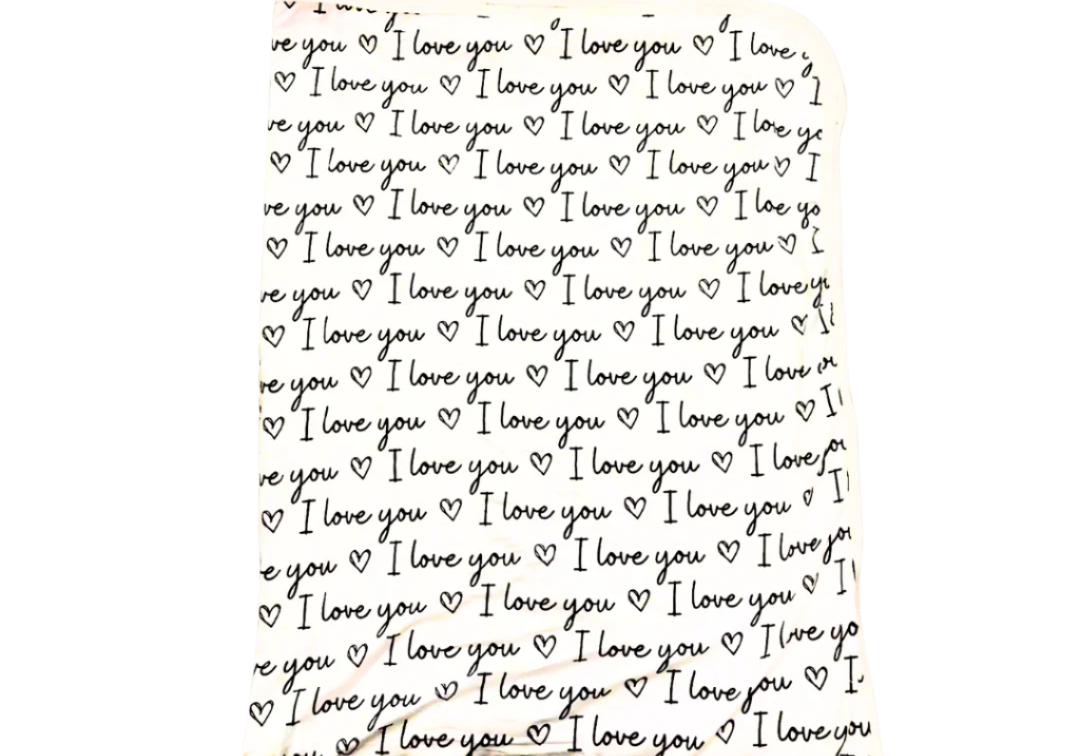 I love you
ve you ♡ I love you ♡ I love you ♡ I love
♡ I love you ♡ I love you ♡ I love you ♡ I
ve you ♡ I love you ♡ I love you ♡ I love yo
♡ I love you ♡ I love you ♡ I love you ♡ I
ve you ♡ I love you ♡ I love you ♡ I loe yo
♡ I love you ♡ I love you ♡ I love you ♡ I
ve you ♡ I love you ♡ I love you ♡ I love yo
♡ I love you ♡ I love you ♡ I love you ♡ I
ve you ♡ I love you ♡ I love you ♡ I love ou
♡ I love you ♡ I love you ♡ I love you ♡ I
ve you ♡ I love you ♡ I love you ♡ I love you
♡ I love you ♡ I love you ♡ I love you ♡ I
e you ♡ I love you ♡ I love you ♡ I love you
♡ I love you ♡ I love you ♡ I love you ♡ I
ve you ♡ I love you ♡ I love you ♡ I love yo
♡ I love you ♡ I love you ♡ I love you ♡ I
you ♡ I love you ♡ I love you ♡ I love you